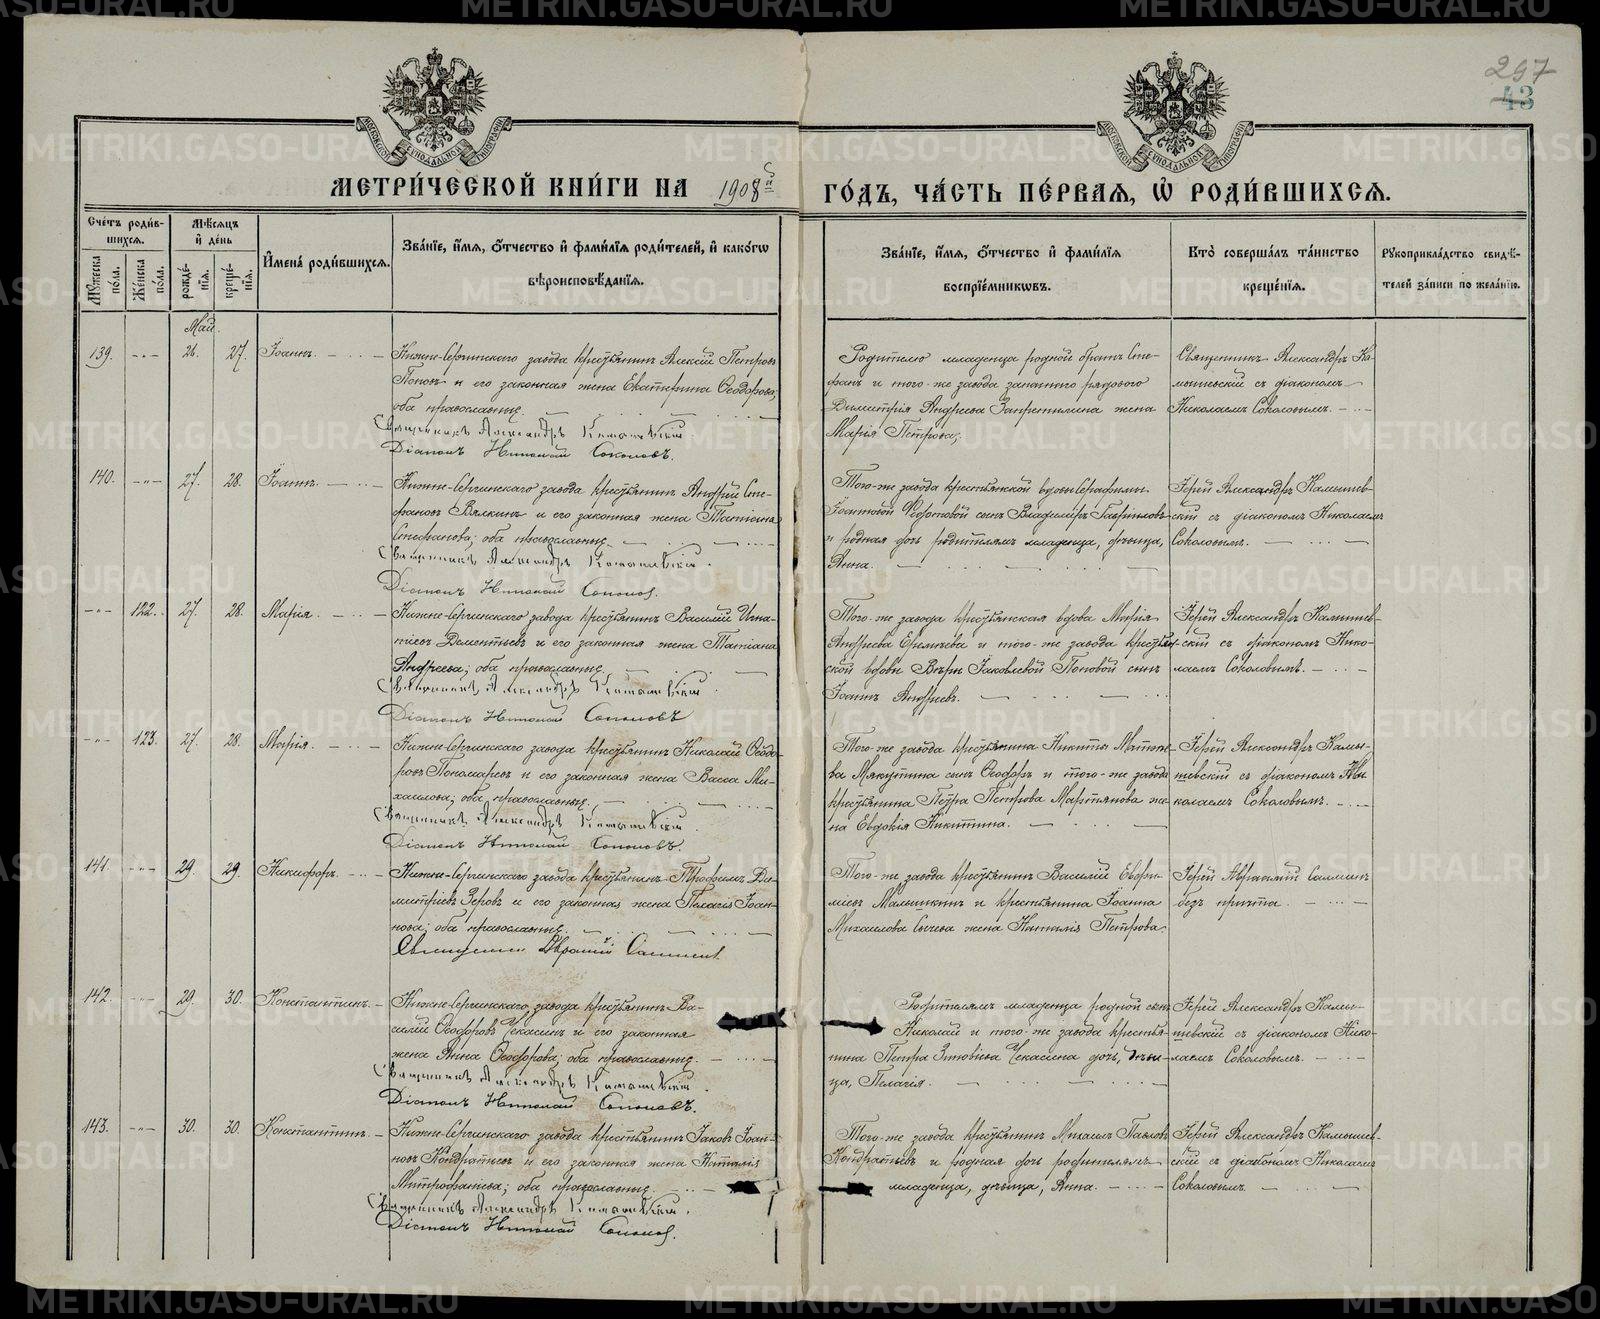 297
43
МОСКОВСКОЙ СѴНОДАЛЬНОЙ ТИПОГРАФІИ
МОСКОВСКОЙ СѴНОДАЛЬНОЙ ТИПОГРАФІИ
МЕТРИ́ЧЕСКОЙ КНИ́ГИ НА 1908й ГО́ДЪ, ЧА́СТЬ ПЕ́РВАЯ, Ѡ҆ РОДИ́ВШИХСЯ.
Сче́тъ роди́в-
шихся.
Мѣ́сяцъ
и҆ де́нь
Мꙋ́жеска по́ла.
Же́нска по́ла.
рожде́-
нїя.
креще́-
нїя.
И҆мена̀ роди́вшихся.
Зва́нїе, и҆́мя, ѻ҆́тчество и҆ фами́лїя роди́телей, и҆ како́гѡ
вѣроисповѣ́данїя.
Зва́нїе, и҆́мя, ѻ҆́тчество и҆ фами́лїя
воспрїе́мникѡвъ.
Кто̀ соверша́лъ та́инство
креще́нїя.
Рꙋкоприкла́дство свидѣ́-
телей за́писи по жела́нїю.
Май.
139. -"- 26. 27. Іоаннъ.
Нижне-Сергинскаго завода крестьянинъ Алексій Петровъ
Поповъ и его законная жена Екатерина Ѳеодорова,
оба православные.
Священникъ Александръ Камышевскій.
Діаконъ Николай Соколовъ.
Родителю младенца родной братъ Сте-
фанъ и того-же завода запаснаго рядового
Димитрія Андреева Запретилина жена
Марія Петрова;
Священникъ Александръ Ка-
мышевскій съ діакономъ
Николаемъ Соколовымъ.
140. -"- 27. 28. Іоаннъ.
Нижне-Сергинскаго завода крестьянинъ Андрей Сте-
фановъ Вялкинъ и его законная жена Татіана
Стефанова; оба православные.
Священникъ Александръ Камышевскій.
Діаконъ Николай Соколовъ.
Того-же завода крестьянской вдовы Серафимы
Іоанновой Федотовой сынъ Владиміръ Гавриловъ
и родная дочь родителямъ младенца, дѣвица,
Анна.
Іерей Александръ Камышев-
скій съ діакономъ Николаемъ
Соколовымъ.
-"- 122. 27. 28. Марія.
Нижне-Сергинскаго завода крестьянинъ Василій Игна-
тіевъ Дементьевъ и его законная жена Татіана
Андреева; оба православные.
Священникъ Александръ Камышевскій.
Діаконъ Николай Соколовъ
Того-же завода крестьянская вдова Марія
Андреева и того-же завода крестьян-
ской вдовы Вѣры Іаковлевой Поповой сынъ
Іоаннъ Андреевъ.
Іерей Александръ Камышев-
скій съ діакономъ Нико-
лаемъ Соколовымъ.
-"- 123. 27. 28. Марія.
Нижне-Сергинскаго завода крестьянинъ Николай Ѳеодо-
ровъ Пономаревъ и его законная жена Васса Ми-
хаилова; оба православные.
Священникъ Александръ Камышевскій.
Діаконъ Николай Соколовъ.
Того-же завода крестьянина Никиты Матѳіе-
ва Мякутина сынъ Ѳеодоръ и того-же завода
крестьянина Петра Петрова Мартьянова же-
на Евдокія Никитина.
Іерей Александръ Камы-
шевскій съ діакономъ Ни-
колаемъ Соколовымъ.
141. -"- 29. 29. Никифоръ.
Нижне-Сергинскаго завода крестьянинъ Трофимъ Ди-
митріевъ Зеровъ и его законная жена Пелагія Іоан-
нова; оба православные.
Священникъ
Того-же завода крестьянинъ Василій Евфи-
міевъ Малышкинъ и крестьянина Іоанна
Михаилова Сычева жена Наталія Петрова.
Іерей
безъ причта.
142. -"- 29. 30. Константинъ.
Нижне-Сергинскаго завода крестьянинъ Ва-
силій Ѳеодоровъ Чекасинъ и его законная
жена Анна Ѳеодорова; оба православные.
Священникъ Александръ Камышевскій.
Діаконъ Николай Соколовъ.
Родителямъ младенца родной сынъ
Николай и того-же завода крестья-
нина Петра Зиновіева Чекасина дочь, дѣви-
ца, Пелагія.
Іерей Александръ Камы-
шевскій съ діакономъ Нико-
лаемъ Соколовымъ.
143. -"- 30. 30. Константинъ.
Нижне-Сергинскаго завода крестьянинъ Іаковъ Іоан-
новъ Кондратьевъ и его законная жена Наталія
Митрофанова; оба православные.
Священникъ Александръ Камышевскій.
Діаконъ Николай Соколовъ.
Того-же завода крестьянинъ Михаилъ Павловъ
Кондратьевъ и родная дочь родителямъ
младенца, дѣвица, Анна.
Іерей Александръ Камышев-
скій съ діакономъ Николаемъ
Соколовымъ.
METRIKI.GASO-URAL.RU